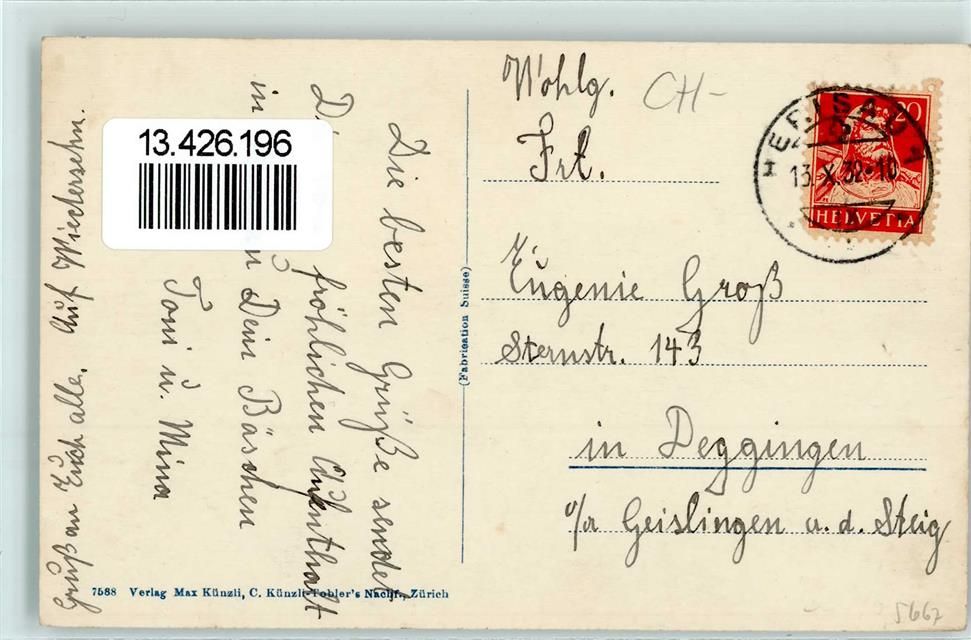 Die besten Grüße sendet
fröhlichen Aufenthalt
in Dein Bäschen
Toni u. Mina
Auf Wiedersehn.
Gruß an Euch alle.
13.426.196
Wohlg.
CH-
Frl.
Eugenie Groß
Sternstr. 143
in Deggingen
o/a Geislingen a. d. Steig
HERISAU
13.X.32-10
20
HELVETIA
(Fabrication Suisse)
7588 Verlag Max Künzli, C. Künzli-Tobler's Nachf., Zürich
5667